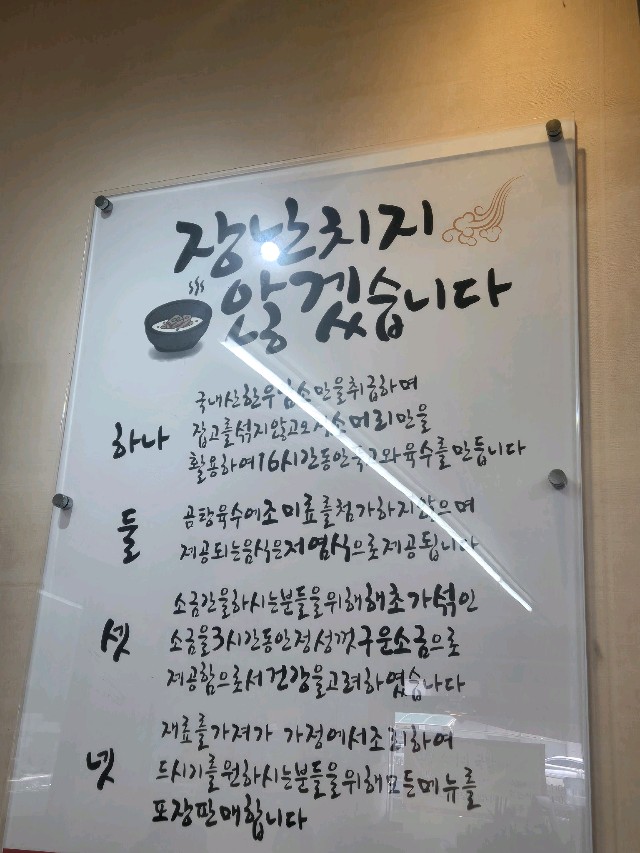 장난치지
않겠습니다
하나
국내산한우암소만을취급하며
잡고를섞지않고오직소머리만을
활용하여16시간동안푹고와육수를만듭니다
둘
곰탕육수에조미료를첨가하지않으며
제공되는음식은저염식으로제공됩니다
셋
소금간을하시는분들을위해해초가섞인
소금을3시간동안정성껏구운소금으로
제공함으로서건강을고려하였습니다
넷
재료를가져가 가정에서조리하여
드시기를원하시는분들을위해모든메뉴를
포장판매합니다